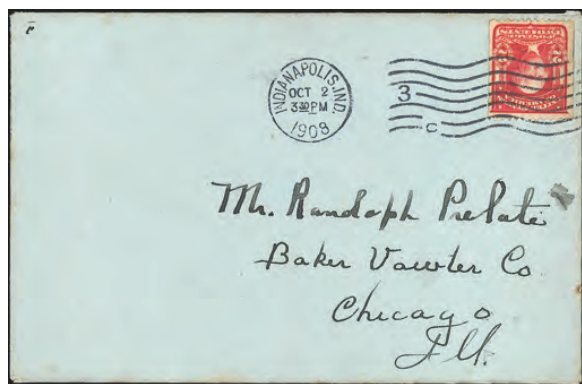 INDIANAPOLIS, IND.
OCT 2
3 30 PM
1908
3
C
Mr. Randoph Prelate
Baker Vawter Co.
Chicago
Ill.